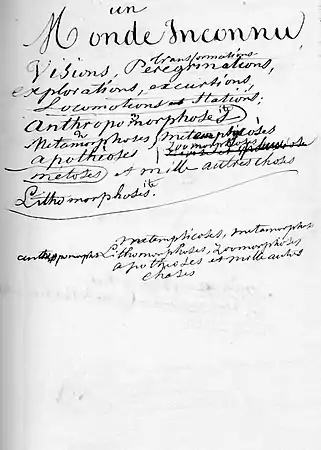 un
Monde Inconnu
transformations
Visions, Pérégrinations,
explorations, excurtions,
Locomotions et Stations;
Anthropomorphoses ité
Métamorphoses métempsicoses
apothéoses zoomorphoses
metoses et mille autres choses
Lithomorphoses. ité
métempticoses, métamorphoses
Lithomorphoses, Zoomorphoses
apothéoses et mille autres
choses